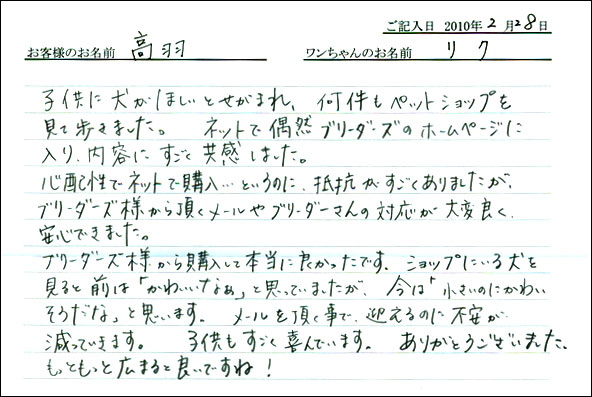 ご記入日 2010年2月28日
お客様のお名前 高羽 ワンちゃんのお名前 リク
子供に犬がほしいとせがまれ、何件もペットショップを
見て歩きました。 ネットで偶然ブリーダーズのホームページに
入り、内容にすごく共感しました。
心配性でネットで購入…というのに、抵抗がすごくありましたが、
ブリーダーズ様から頂くメールやブリーダーさんの対応が大変良く、
安心できました。
ブリーダーズ様から購入して本当に良かったです。ショップにいる犬を
見ると前は「かわいいなぁ」と思っていましたが、今は「小さいのにかわい
そうだな」と思います。 メールを頂く事で、迎えるのに不安が
減っていきます。 子供もすごく喜んでいます。 ありがとうございました。
もっともっと広まると良いですね！